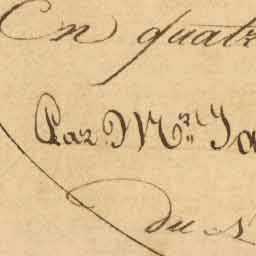 En quatr
Par Mr. Ja
du